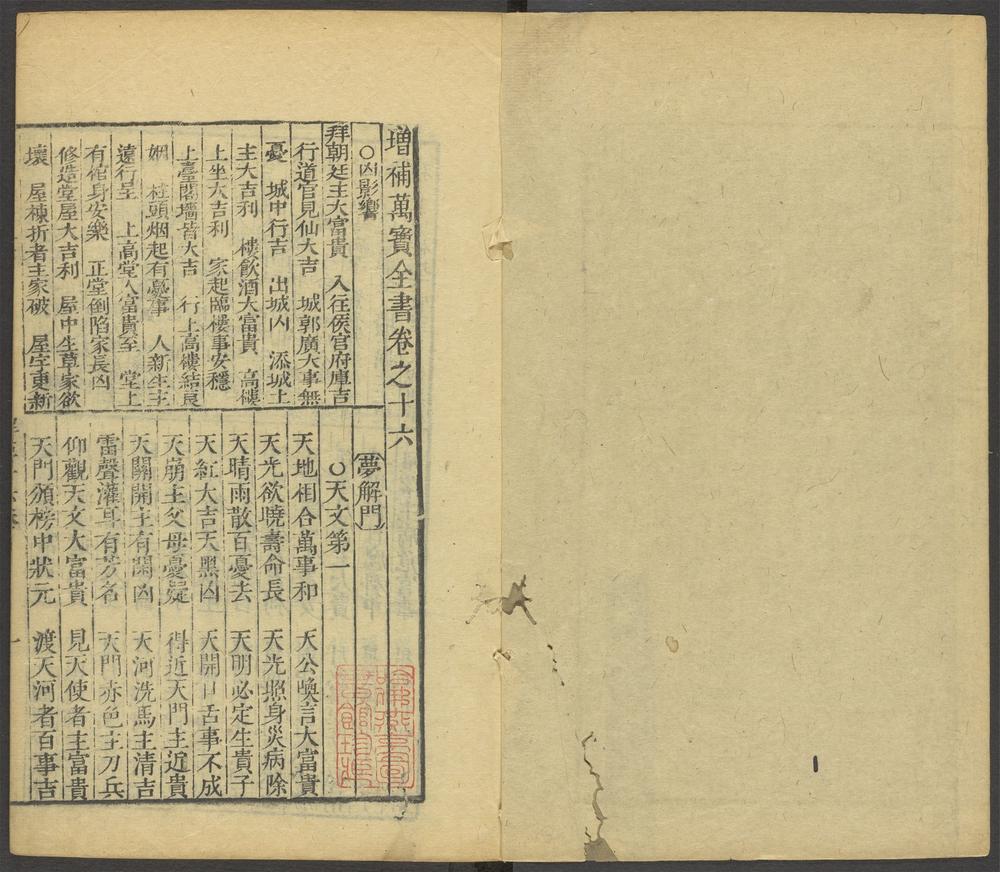 增補萬寶全書卷之十六
○凶影響
拜朝廷主大富貴　入往侯官府庫吉
行道官見仙大吉　城郭廣大事無
憂　城中行吉　出城凶　添城上
主大吉利　樓飲酒大富貴　高樓
上坐大吉利　家起臨樓事安穩
上臺閣墻皆大吉　行上高樓結良
姻　柱頭烟起有憂事　人新生主
遠行呈　上高堂人富貴至　堂上
有棺身安樂　正堂倒陷家長凶
修造堂屋大吉利　屋中生草家欲
壞　屋棟折者主家破　屋宇更新
夢解門
○天文第一
天地相合萬事和　天公喚言大富貴
天光欲曉壽命長　天光照身災病除
天晴雨散百憂去　天明必定生貴子
天紅大吉天黑凶　天開口舌事不成
天崩主父母憂疑　得近天門主近貴
天關開主有閑凶　天河洗馬主清吉
雷聲灌耳有芳名　天門赤色主刀兵
仰觀天文大富貴　見天使者主富貴
天門頒榜中狀元　渡天河者百事吉
一